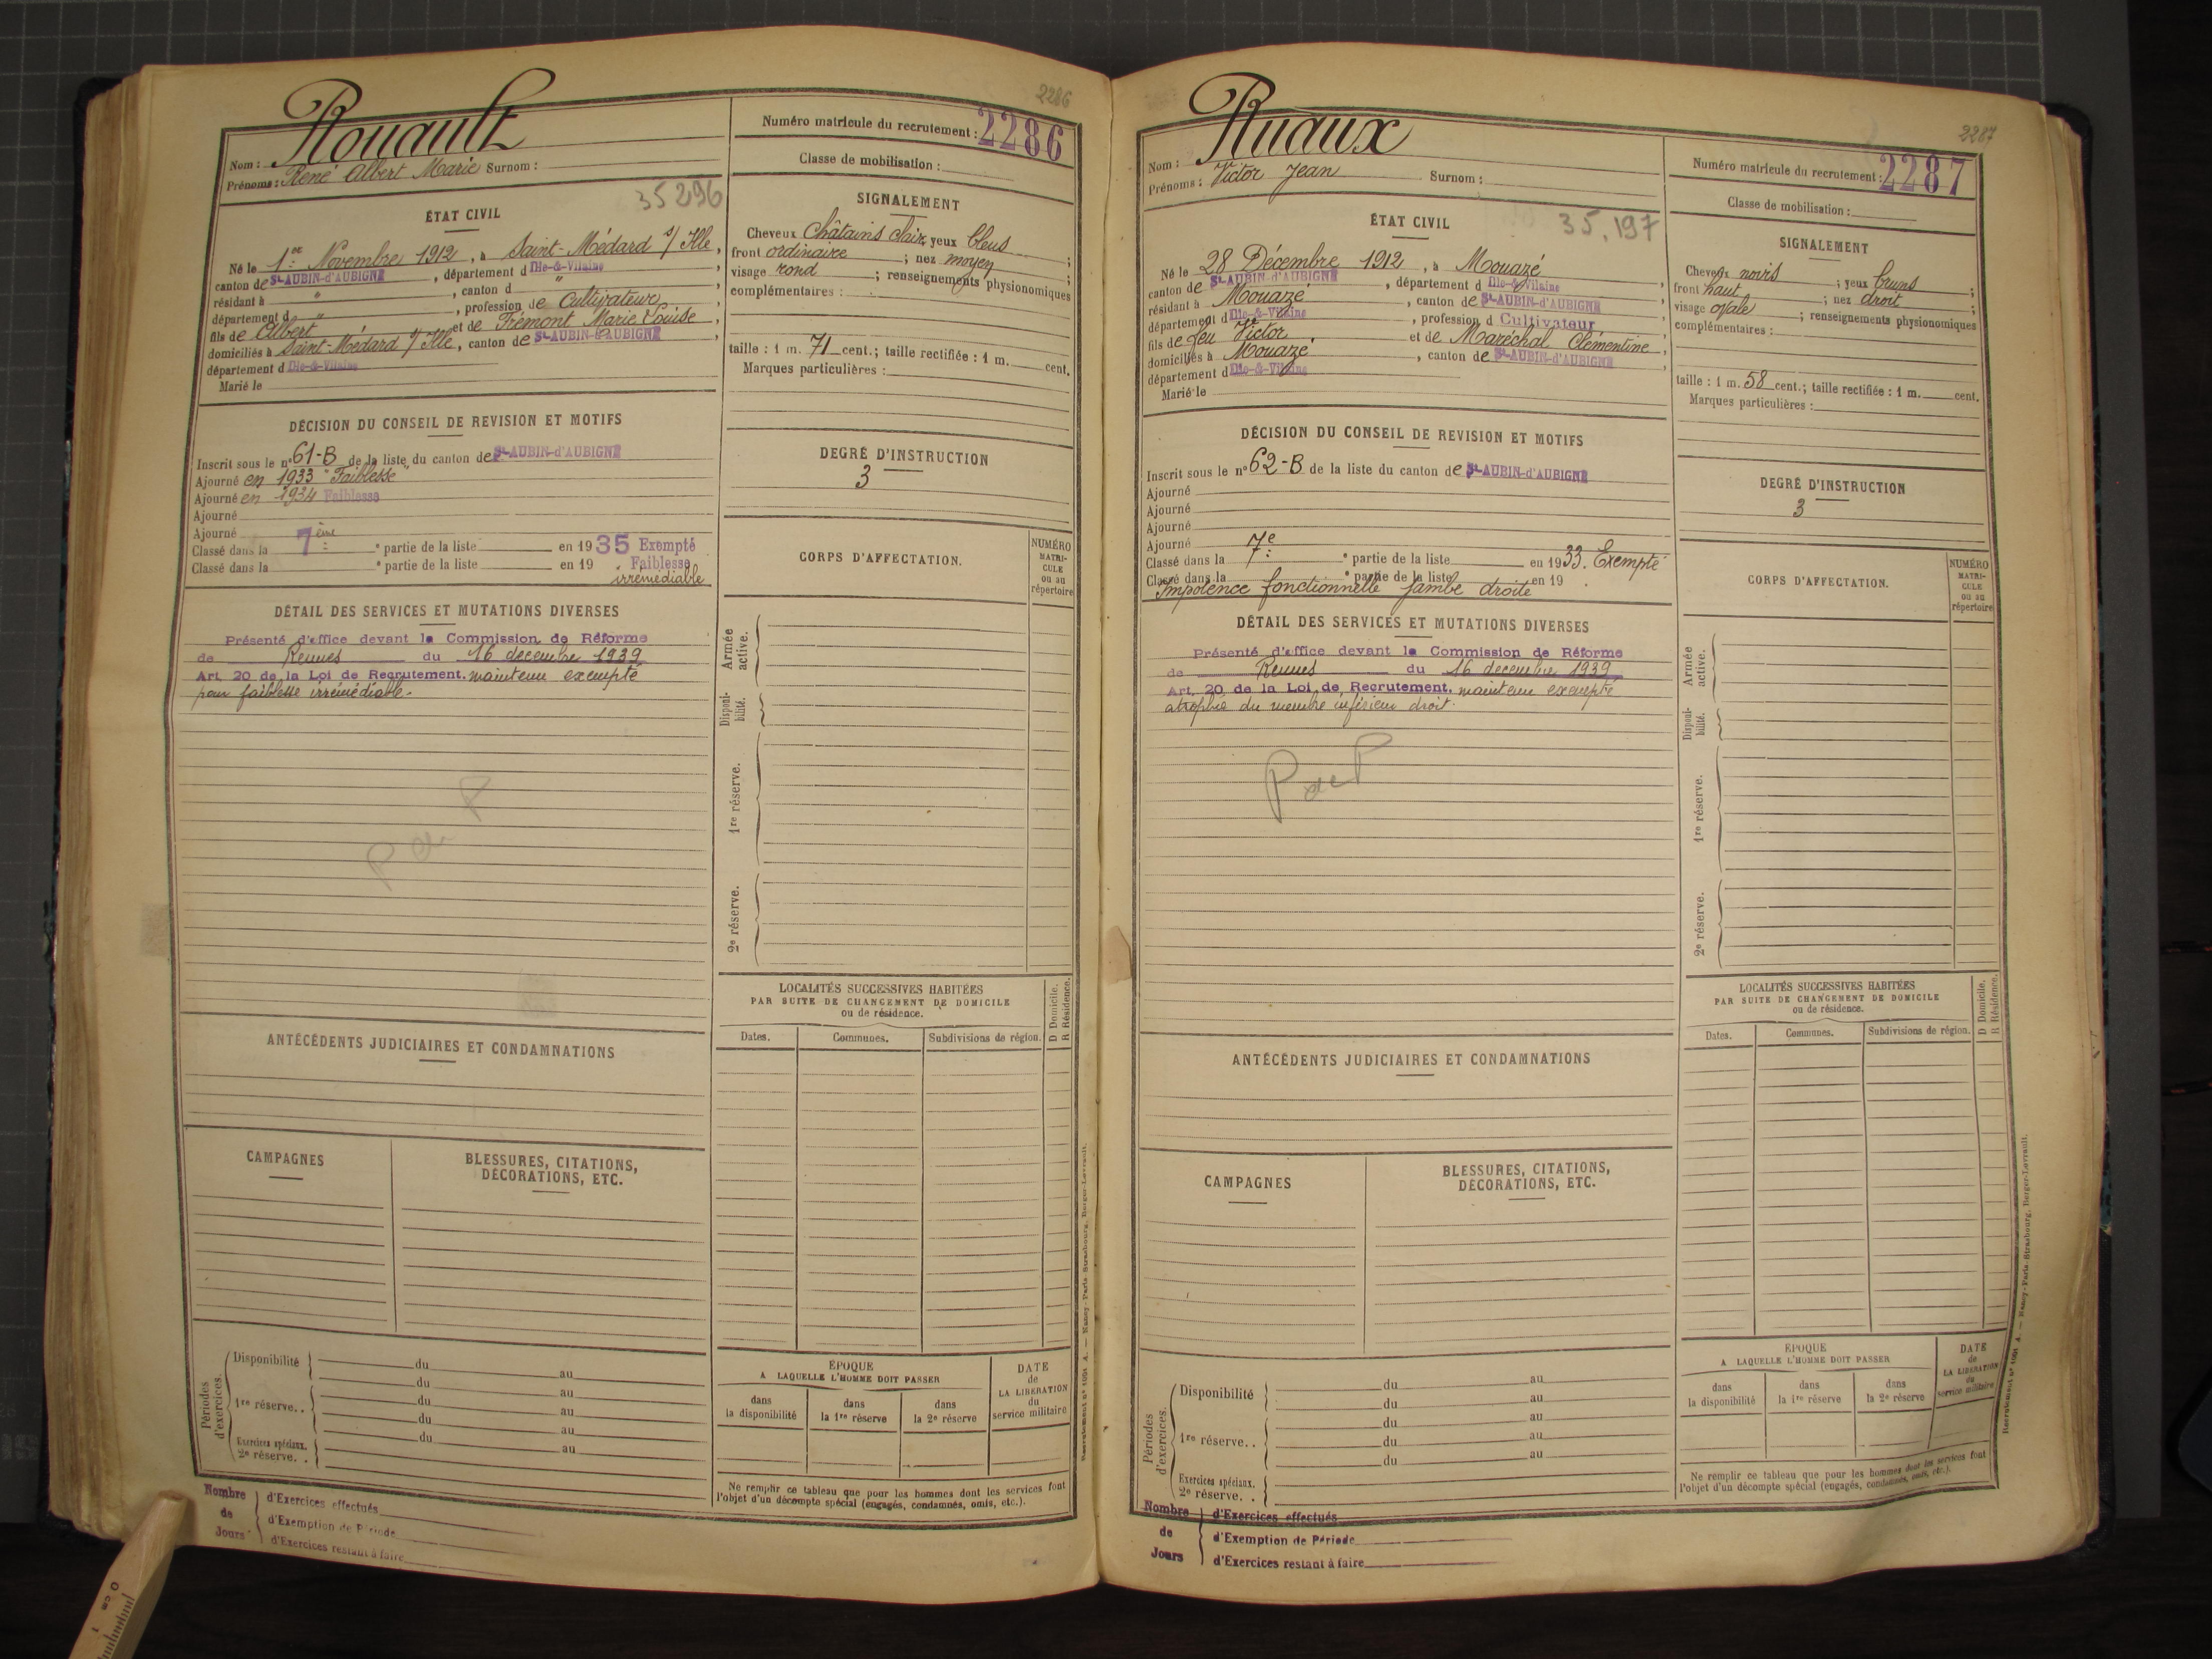 2286
Rouault
Nom :
Prénoms : René Albert Marie Surnom :
Numéro matricule du recrutement : 2286
Classe de mobilisation :
35296
ÉTAT CIVIL
Né le 1er Novembre 1912, à Saint-Médard s/ Ille,
canton de St-AUBIN-d'AUBIGNÉ, département d Ille-&-Vilaine,
résidant à ", canton d ",
département d ", profession de Cultivateur,
fils de Albert et de Frémont Marie Louise,
domiciliés à Saint-Médard s/ Ille, canton de St-AUBIN-d'AUBIGNÉ,
département d Ille-&-Vilaine
Marié le
SIGNALEMENT
Cheveux Châtains clair, yeux bleus ;
front ordinaire ; nez moyen ;
visage rond ; renseignements physionomiques
complémentaires :
taille : 1 m. 71 cent.; taille rectifiée : 1 m. cent.
Marques particulières :
DÉCISION DU CONSEIL DE REVISION ET MOTIFS
Inscrit sous le n° 61-B de la liste du canton de St-AUBIN-d'AUBIGNÉ
Ajourné en 1933 "Faiblesse"
Ajourné en 1934 Faiblesse
Ajourné
Ajourné
Classé dans la 7ème e partie de la liste en 1935 Exempté
Classé dans la e partie de la liste en 19 Faiblesse
irrémédiable
DEGRÉ D'INSTRUCTION
3
DÉTAIL DES SERVICES ET MUTATIONS DIVERSES
Présenté d'office devant la Commission de Réforme
de Rennes du 16 décembre 1939
Art. 20 de la Loi de Recrutement. maintenu exempté
pour faiblesse irrémédiable.
P de P
CORPS D'AFFECTATION.
NUMÉRO
MATRI-
CULE
ou au
répertoire
Armée
active.
Disponi-
bilité.
1re réserve.
2e réserve.
ANTÉCÉDENTS JUDICIAIRES ET CONDAMNATIONS
LOCALITÉS SUCCESSIVES HABITÉES
PAR SUITE DE CHANGEMENT DE DOMICILE
ou de résidence.
D Domicile.
R Résidence.
Dates. Communes. Subdivisions de région.
CAMPAGNES
BLESSURES, CITATIONS,
DÉCORATIONS, ETC.
Périodes
d'exercices.
Disponibilité du au
du au
1re réserve. . du au
du au
du au
Exercices spéciaux.
2e réserve. .
ÉPOQUE
A LAQUELLE L'HOMME DOIT PASSER
dans
la disponibilité
dans
la 1re réserve
dans
la 2e réserve
DATE
de
LA LIBÉRATION
du
service militaire
Ne remplir ce tableau que pour les hommes dont les services font
l'objet d'un décompte spécial (engagés, condamnés, omis, etc.).
Recrutement n° 1001 A. — Nancy-Paris-Strasbourg, Berger-Levrault.
Nombre
de
Jours
d'Exercices effectués
d'Exemption de Période
d'Exercices restant à faire
0 cm 1
2287
Ruaux
Nom :
Prénoms : Victor Jean Surnom :
Numéro matricule du recrutement : 2287
Classe de mobilisation :
35.197
ÉTAT CIVIL
Né le 28 Décembre 1912, à Mouazé
canton de St-AUBIN-d'AUBIGNÉ, département d Ille-&-Vilaine
résidant à Mouazé, canton de St-AUBIN-d'AUBIGNÉ
département d Ille-&-Vilaine, profession d Cultivateur,
fils de feu Victor et de Maréchal Clémentine,
domiciliés à Mouazé, canton de St-AUBIN-d'AUBIGNÉ
département d Ille-&-Vilaine
Marié le
SIGNALEMENT
Cheveux noirs ; yeux bruns ;
front haut ; nez droit ;
visage ovale ; renseignements physionomiques
complémentaires :
taille : 1 m. 58 cent.; taille rectifiée : 1 m. cent.
Marques particulières :
DÉCISION DU CONSEIL DE REVISION ET MOTIFS
Inscrit sous le n° 62-B de la liste du canton de St-AUBIN-d'AUBIGNÉ
Ajourné
Ajourné
Ajourné
Ajourné
Classé dans la 7e e partie de la liste en 1933. Exempté
Classé dans la e partie de la liste en 19
Impotence fonctionnelle jambe droite
DEGRÉ D'INSTRUCTION
3
DÉTAIL DES SERVICES ET MUTATIONS DIVERSES
Présenté d'office devant la Commission de Réforme
de Rennes du 16 décembre 1939
Art. 20 de la Loi de Recrutement. maintenu exempté
atrophie du membre inférieur droit.
P de P
CORPS D'AFFECTATION.
NUMÉRO
MATRI-
CULE
ou au
répertoire
Armée
active.
Disponi-
bilité.
1re réserve.
2e réserve.
ANTÉCÉDENTS JUDICIAIRES ET CONDAMNATIONS
LOCALITÉS SUCCESSIVES HABITÉES
PAR SUITE DE CHANGEMENT DE DOMICILE
ou de résidence.
D Domicile.
R Résidence.
Dates. Communes. Subdivisions de région.
CAMPAGNES
BLESSURES, CITATIONS,
DÉCORATIONS, ETC.
Périodes
d'exercices.
Disponibilité du au
du au
1re réserve. . du au
du au
du au
Exercices spéciaux.
2e réserve. .
ÉPOQUE
A LAQUELLE L'HOMME DOIT PASSER
dans
la disponibilité
dans
la 1re réserve
dans
la 2e réserve
DATE
de
LA LIBÉRATION
du
service militaire
Ne remplir ce tableau que pour les hommes dont les services font
l'objet d'un décompte spécial (engagés, condamnés, omis, etc.).
Recrutement n° 1001 A. — Nancy-Paris-Strasbourg, Berger-Levrault.
Nombre
de
Jours
d'Exercices effectués
d'Exemption de Période
d'Exercices restant à faire